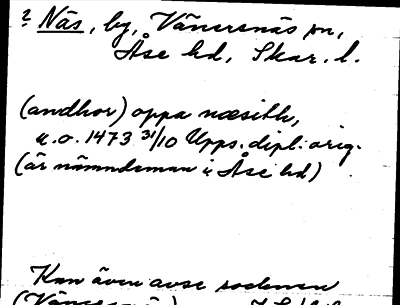 ? Näs, by, Vänersnäs sn,
Åse hd, Skar. l.
(andhor) oppa næsith,
u.o. 1473 31/10 Upps. dipl. orig.
(är nämndeman i Åse hd)
Kan även avse socknen